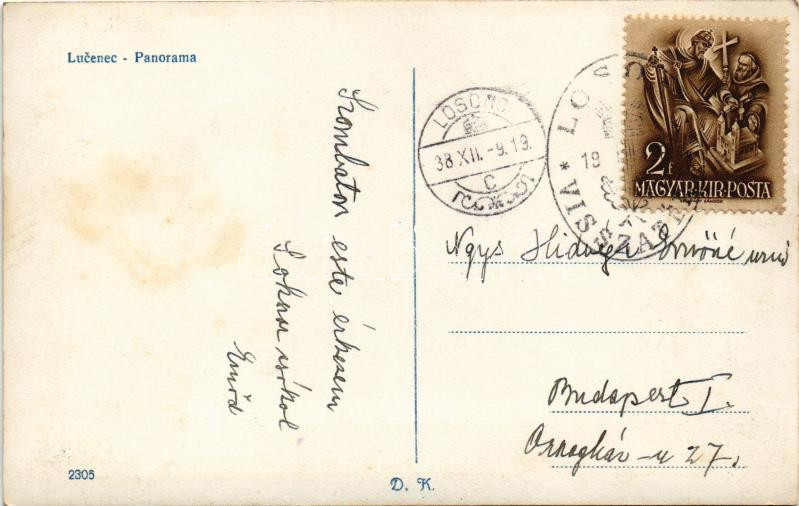 Lučenec - Panorama
Szombaton este érkezem
Sokszor csókol
Emőd
2305
D. K.
LOSONC
38 XII. -9. 19.
C
LOSONC
VISSZATÉRT
19
2 f
MAGYAR·KIR·POSTA
Ngys Hidvégi Ernőné urnő
Budapest I.
Országház-u 27.